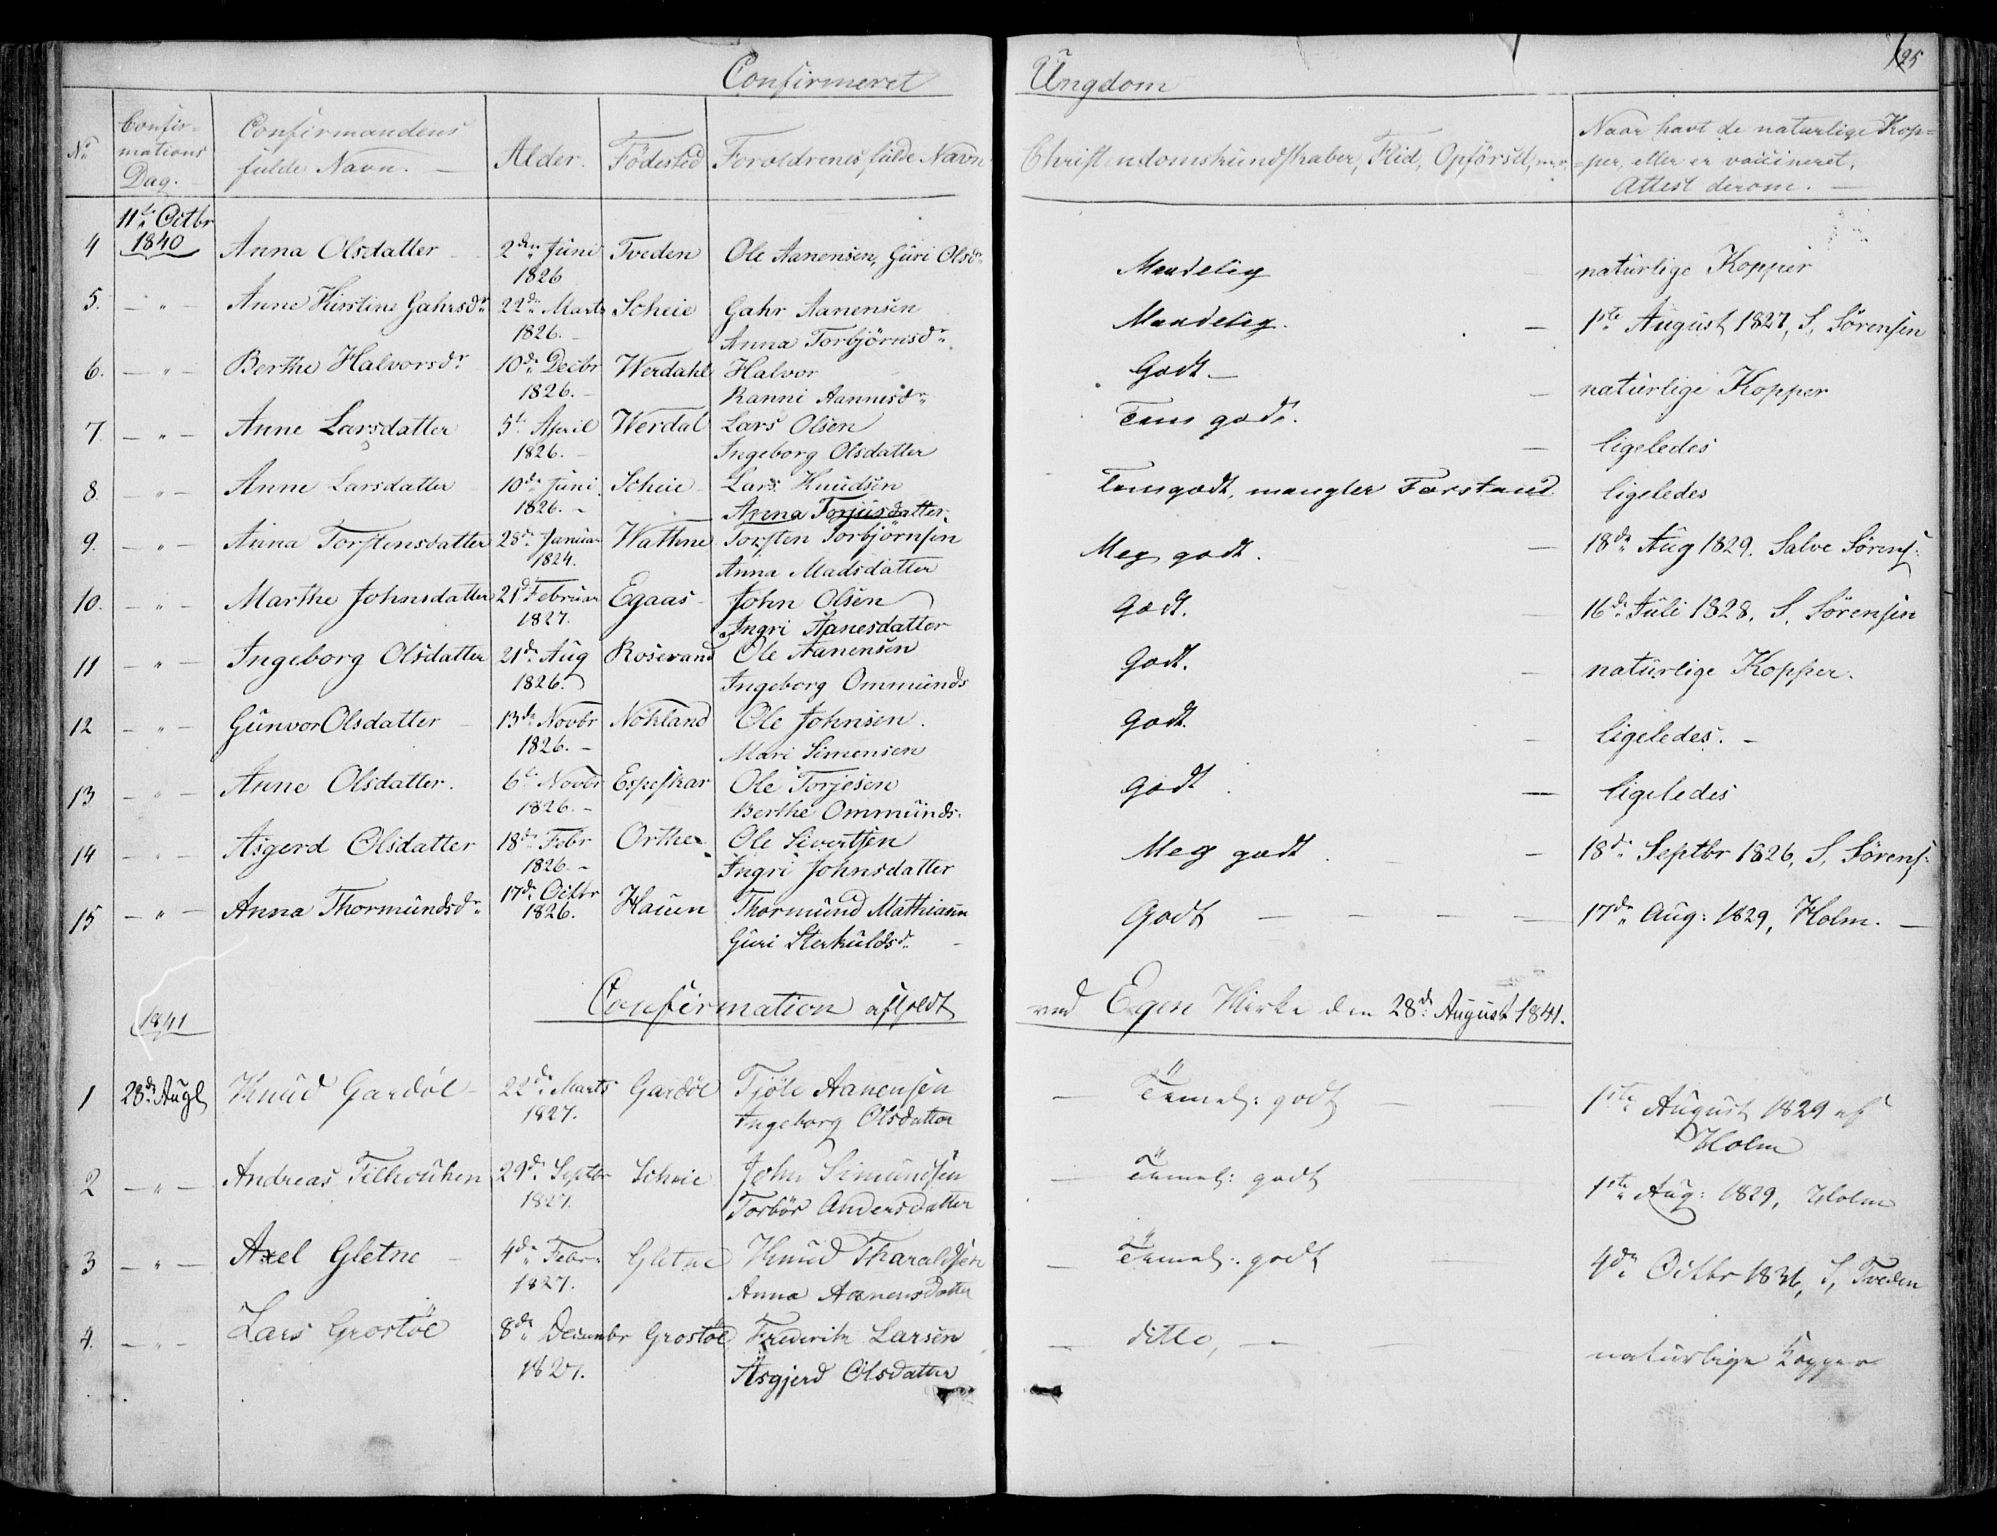 Confirmeret Ungdom
No Confirmations Dag. Confirmandens fulde Navn. Alder. Födested Foreldrenes fulde Navn Christendomskundskaber, Flid, Opförsel, Naar havt de naturlige Kopper, eller er vaccineret, Attest derom.
11te Octbr 1840
4 Anna Olsdatter 2den Juni 1826 Tveden Ole Aanensen, Guri Olsdr naturlige Kopper
5. — " — Anne Kirstine Gahrsdr 22de Marts 1826. Scheie Gahr Aanensen
Anna Torbjörnsdr 1ste August 1827, S. Sörensen
6. — " — Berthe Halvorsdr 10de Decbr 1826. Werdahl Halvor
Ranni Aannesdr Godt — naturlige Kopper
7. — " — Anne Larsdatter 5te April 1826. Werdal Lars Olsen
Ingeborg Olsdatter Tem godt. — ligeledes
8. — " — Anne Larsdatter 10de Juni 1826. Scheie Lars Knudsen
Anna Torjusdatter Temgodt, mangler Forstand ligeledes
9. — " — Anna Torstensdatter 28de Januar 1824. Wathne Torsten Torbjörnsen
Anna Madsdatter Meg godt. — 18de Aug 1829. Salve Sörens:
10. — " — Marthe Johnsdatter 21de Februar 1827. Egaas John Olsen
Ingri Aanesdatter Godt. — 16de Juli 1828. S. Sörensen
11 — " — Ingeborg Olsdatter 21de Aug 1826. Rosevand Ole Aanensen
Ingeborg Ommunds Godt. — naturlige Kopper.
12 — " — Gunvor Olsdatter 13de Novbr 1826. Nökland Ole Johnsen.
Mari Simensen Godt. — ligeledes. —
13 — " — Anne Olsdatter. 6te Novbr 1826. Espeskar Ole Torjesen
Berthe Ommunds. Godt — ligeledes
14 — " — Asgerd Olsdatter 18de Febr 1826. Orthe Ole Sivertsen
Ingri Johnsdatter Meg godt — 18de Septbr 1826, S. Sörens:
15 — " — Anna Thormundsdr 17de Octbr 1826. Hauen Thormund Mathiasen
Guri Sterkuldsdr Godt — 17de Aug: 1829, Holm. —
1841
Confirmation afholdt ved Egen Kirke den 28de August 1841.
1 28de Augt Knud Gardöl 22de Marts 1827. Gardöl Tjöle Aanensen
Ingeborg Olsdatter godt — 1ste August 1829 af Holm
2 — " — Andreas 29de Septbr 1827. Scheie John Simundsen
Torbör Andersdatter godt 1ste Aug: 1829, Holm
3 — " — Axel Gletne 4de Febr 1827. Gletne Knud Tharaldsen
Anna Aanensdatter godt 4de Octbr 1836, S, Tveden
4. — " — Lars Grostöl 8de Decembr 1827. Grostöl Frederik Larsen
Asgjerd Olsdatter ditto, — naturlige Kopper